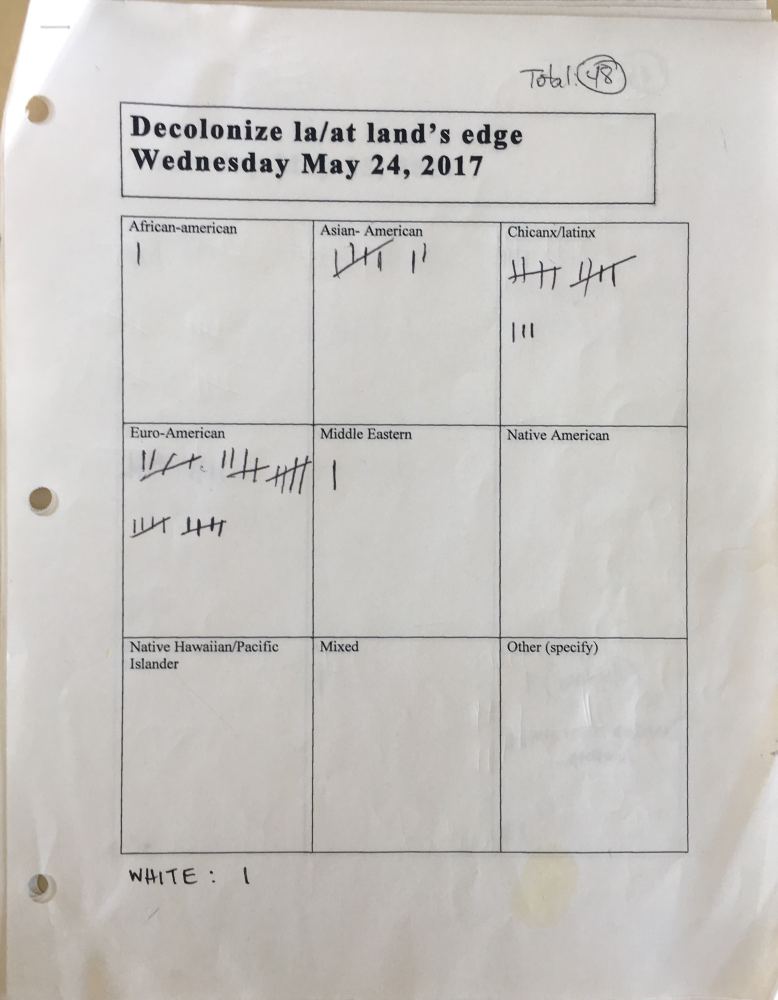 Total: 48
Decolonize la/at land's edge
Wednesday May 24, 2017
African-american
Asian- American
Chicanx/latinx
Euro-American
Middle Eastern
Native American
Native Hawaiian/Pacific
Islander
Mixed
Other (specify)
WHITE: 1